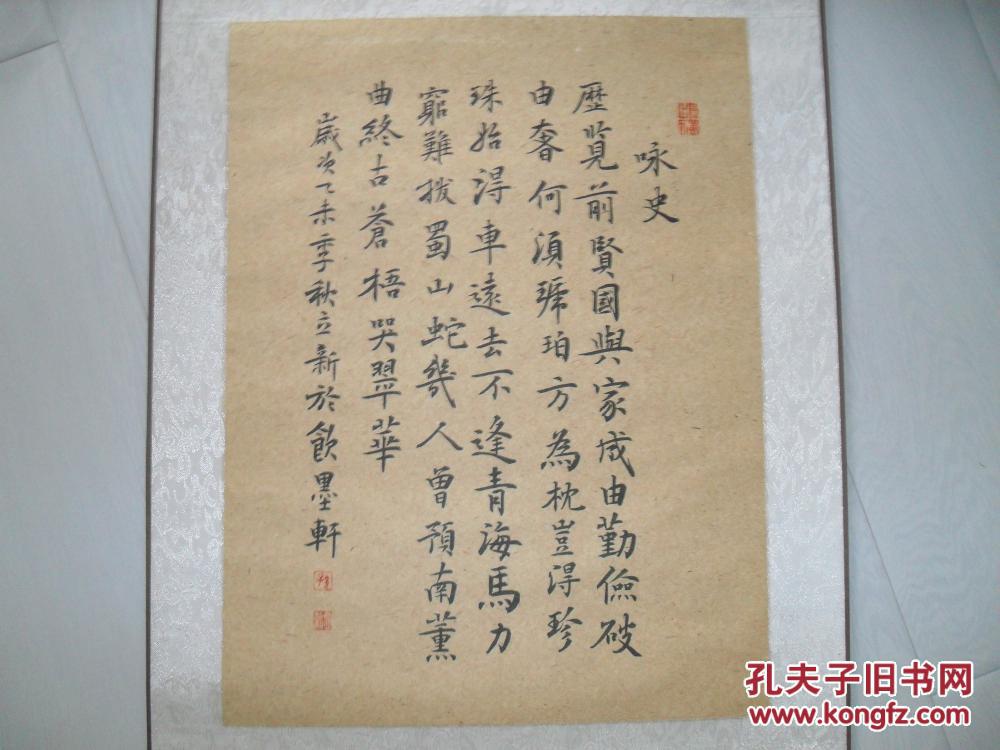 咏史
歷覽前賢國與家成由勤儉破
由奢何須琥珀方為枕豈得珍
珠始得車遠去不逢青海馬力
窮難拔蜀山蛇幾人曾預南薰
曲終古蒼梧哭翠華
歲次乙未季秋立新於飲墨軒
孔夫子旧书网
www.kongfz.com